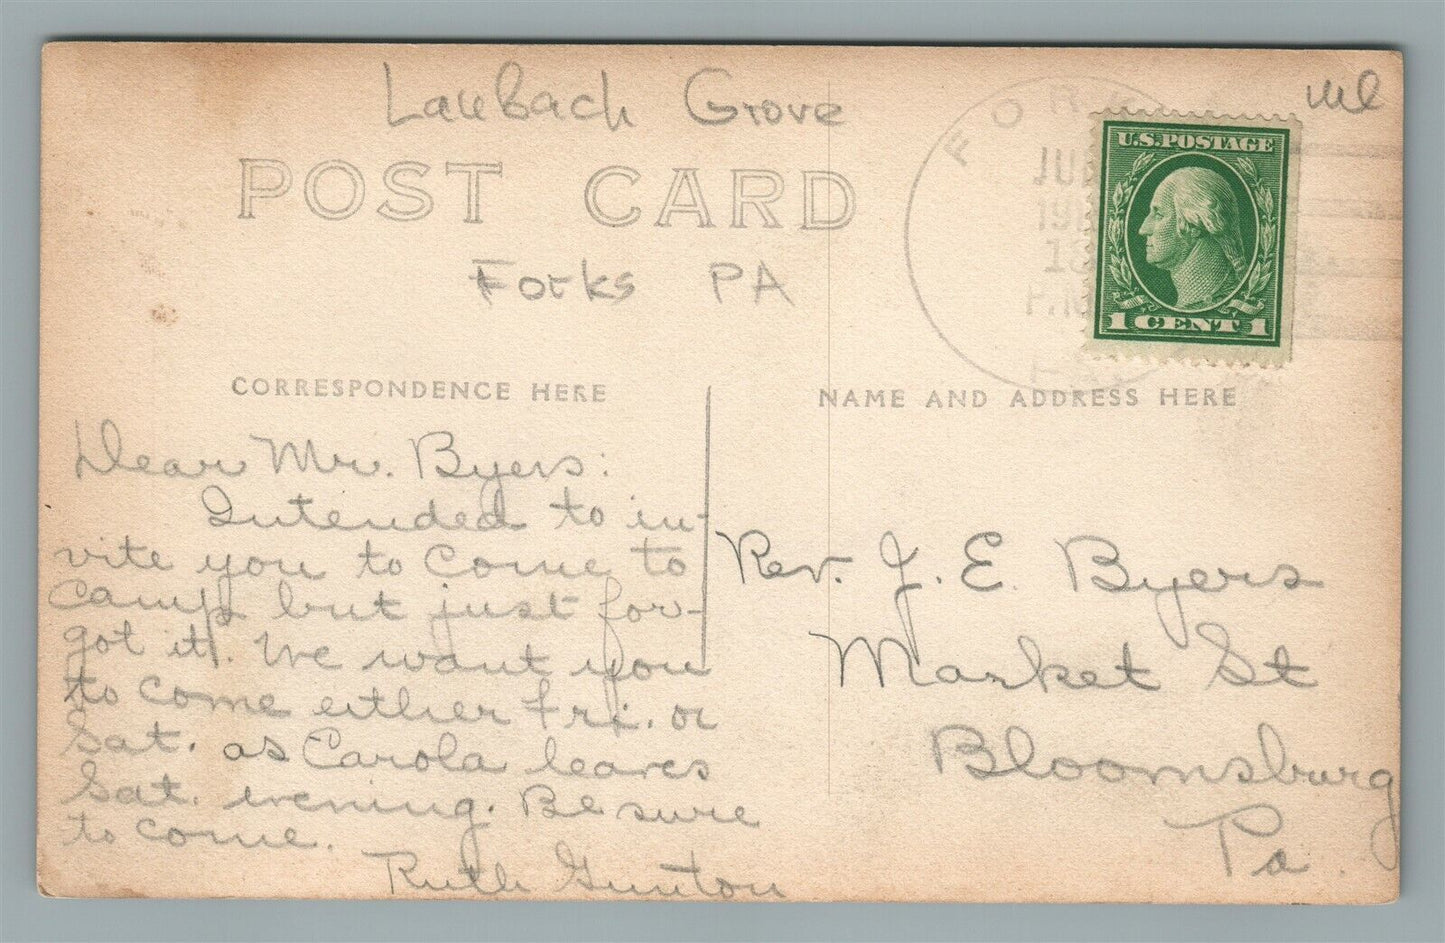 Laubach Grove
POST CARD
Forks PA
FORKS
JUL
U.S. POSTAGE
1 CENT 1
CORRESPONDENCE HERE
NAME AND ADDRESS HERE
Dear Mr. Byers:
Intended to in-
vite you to come to
camp but just for-
got it. We want you
to come either Fri. or
Sat. as Carola leaves
Sat. evening. Be sure
to come.
Ruth Gunton
Rev. J. E. Byers
Market St
Bloomsburg
Pa